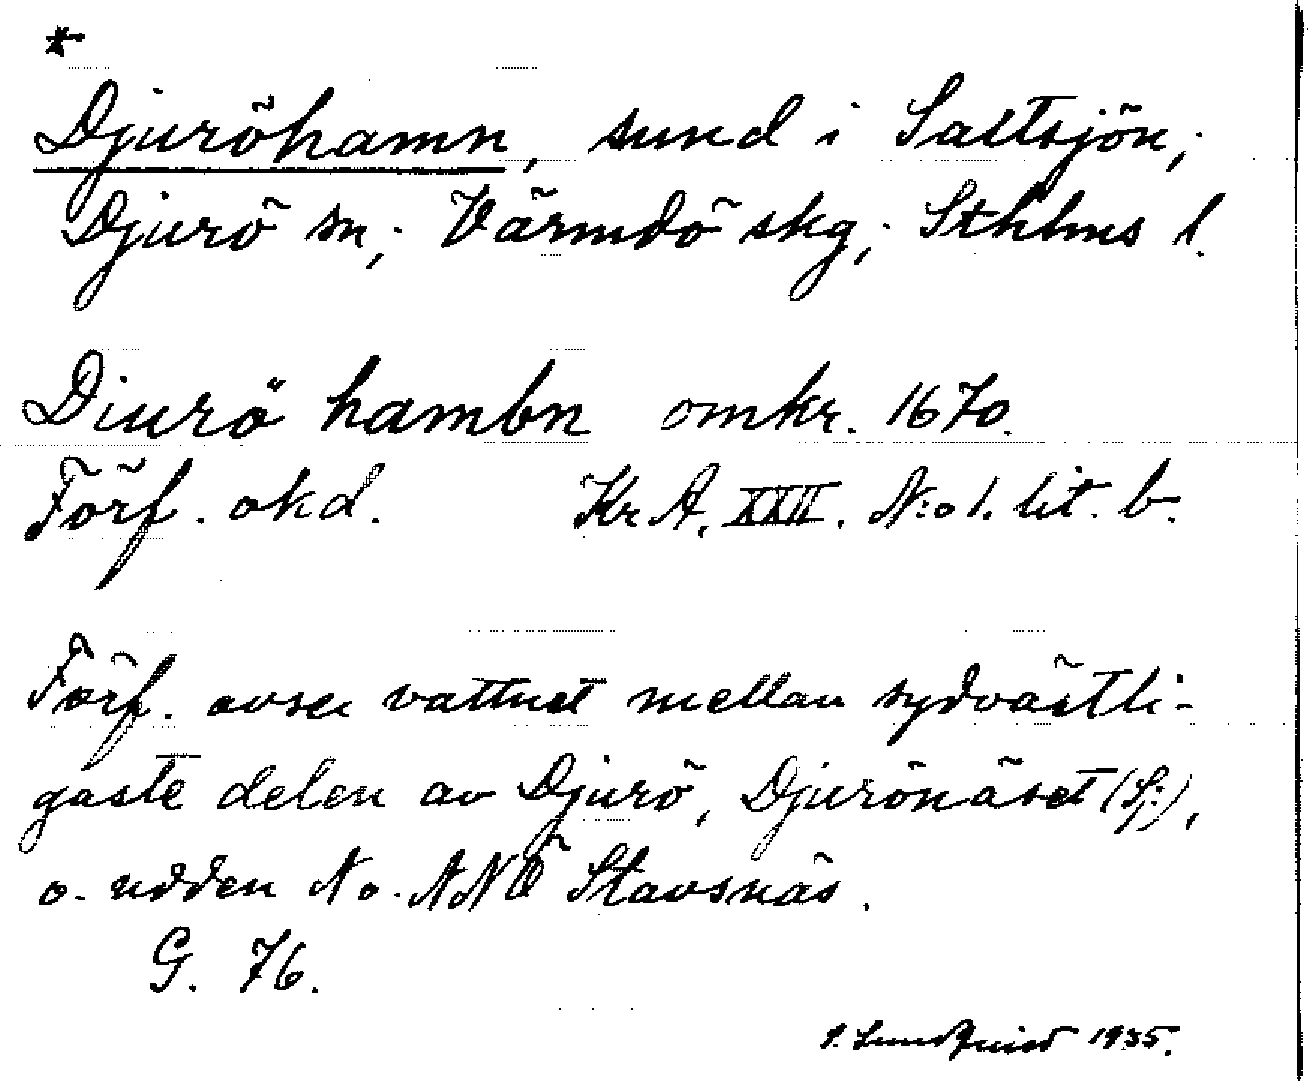 *
Djuröhamn, sund i Saltsjön;
Djurö sn; Värmdö skg; Sthlms l.
Diurö hambn omkr. 1670.
Förf. okd. Kr A. XXII. N:o 1. lit. b.
Förf. avser vattnet mellan sydvästli-
gaste delen av Djurö, Djurönäset (Sj:),
o. udden N o. NNÖ Stavsnäs.
G. 76.
S. Lundqvist 1935.